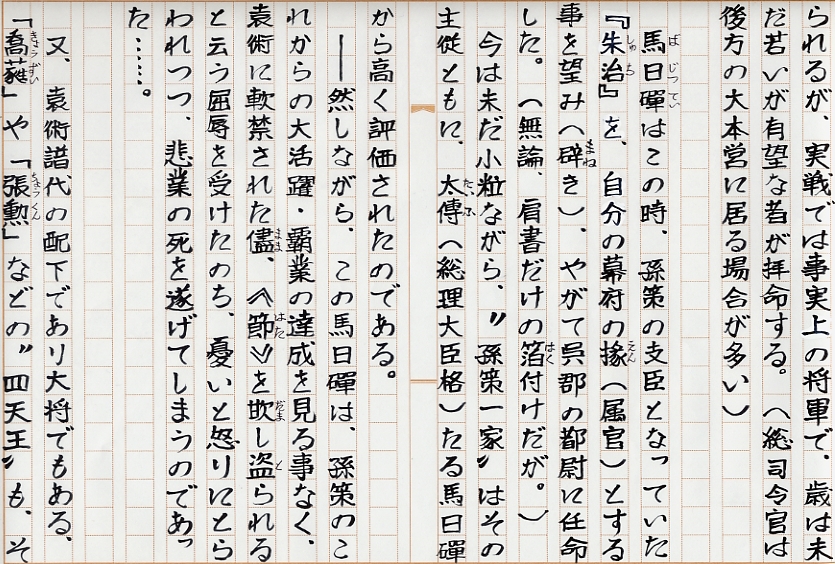 られるが、実戦では事実上の将軍で、歳は未
だ若いが有望な者が拝命する。（総司令官は
後方の大本営に居る場合が多い）
馬日磾はこの時、孫策の支臣となっていた
『朱治』を、自分の幕府の掾（属官）とする
事を望み（辟き）、やがて呉郡の都尉に任命
した。（無論、肩書だけの箔付けだが。）
今は未だ小粒ながら、〃孫策一家〃はその
主従ともに、太傅（総理大臣格）たる馬日磾
から高く評価されたのである。
──然しながら、この馬日磾は、孫策のこ
れからの大活躍・覇業の達成を見る事なく、
袁術に軟禁された儘、《節》を欺し盗られる
と云う屈辱を受けたのち、憂いと怒りにとら
われつつ、悲業の死を遂げてしまうのであっ
た……。
又、袁術譜代の配下であり大将でもある、
「喬蕤」や「張勲」などの〃四天王〃も、そ